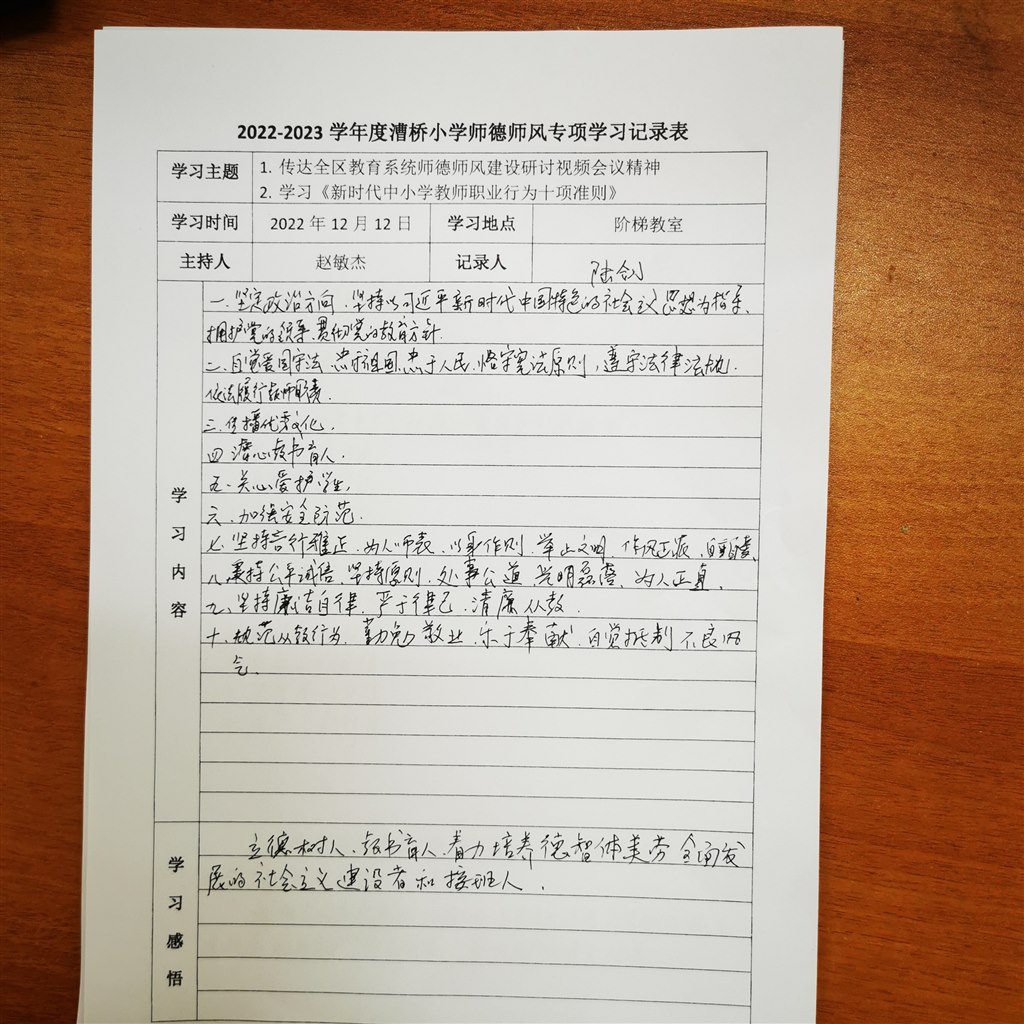 2022-2023 学年度漕桥小学师德师风专项学习记录表
学习主题
1. 传达全区教育系统师德师风建设研讨视频会议精神
2. 学习《新时代中小学教师职业行为十项准则》
学习时间 2022 年 12 月 12 日 学习地点 阶梯教室
主持人 赵敏杰 记录人 陆剑
学习内容
一.坚定政治方向.坚持以习近平新时代中国特色的社会主义思想为指导、
拥护党的领导.贯彻党的教育方针.
二.自觉爱国守法.忠于祖国.忠于人民.恪守宪法原则,遵守法律法规.
依法履行教师职责.
三.传播优秀文化.
四.潜心教书育人.
五.关心爱护学生.
六.加强安全防范.
七.坚持言行雅正.为人师表.以身作则.举止文明.作风正派.自重自爱.
八.秉持公平诚信.坚持原则.处事公道.光明磊落、为人正直.
九.坚持廉洁自律.严于律己.清廉从教.
十.规范从教行为.勤勉敬业.乐于奉献.自觉抵制不良风
气.
学习感悟
立德树人、教书育人.着力培养德智体美劳全面发
展的社会主义建设者和接班人.